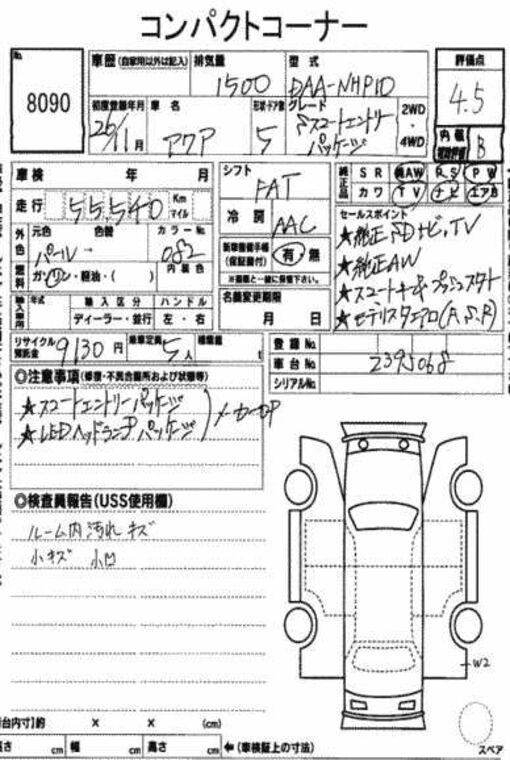 コンパクトコーナー
No.
8090
車歴(自家用以外は記入) 排気量 型式 評価点
1500 DAA-NHP10 4.5
初度登録年月 車名 形状・ドア数 グレード 2WD・4WD
26/11月 アクア 5 Sスマートエントリーパッケージ
内装 B
車検 年 月 シフト FAT
純正品 SR 純AW PS PW
カワ TV ナビ エアB
走行 55,540 Km マイル
冷房 AAC
セールスポイント
★純正SDナビ,TV
★純正AW
★スマートキー&プッシュスタート
★モデリスタエアロ(F,S,R)
外色 元色 色替 カラーNo.
パール → 082
新車整備手帳(保証書付) 有・無
※書類と一緒に保管下さい。
燃料 ガソリン・軽油・( ) 内装色
輸入車用 年式 輸入区分 ハンドル
ディーラー・並行 左・右
名義変更期限
月 日
リサイクル預託金 9130円 乗車定員 5人 積載量 t
登録No.
車台No. 2395068
シリアルNo.
◎注意事項(修復・不具合箇所および状態等)
★スマートエントリーパッケージ
★LEDヘッドランプパッケージ
メーカーOP
◎検査員報告(USS使用欄)
ルーム内汚れ キズ
小キズ 小凹
W2
スペア
台内寸)約 × × (cm)
長さ cm 幅 cm 高さ cm ←(車検証上の寸法)